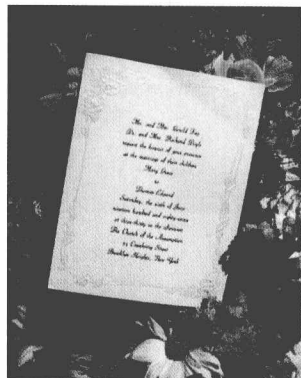 Mr. and Mrs. Gerald Fay
Dr. and Mrs. Richard Doyle
request the honour of your presence
at the marriage of their children
Mary Grace
to
Duncan Edward
Saturday, the sixth of June
nineteen hundred and eighty-seven
at three-thirty in the afternoon
The Church of the Assumption
Cranberry Street
Brooklyn Heights, New York